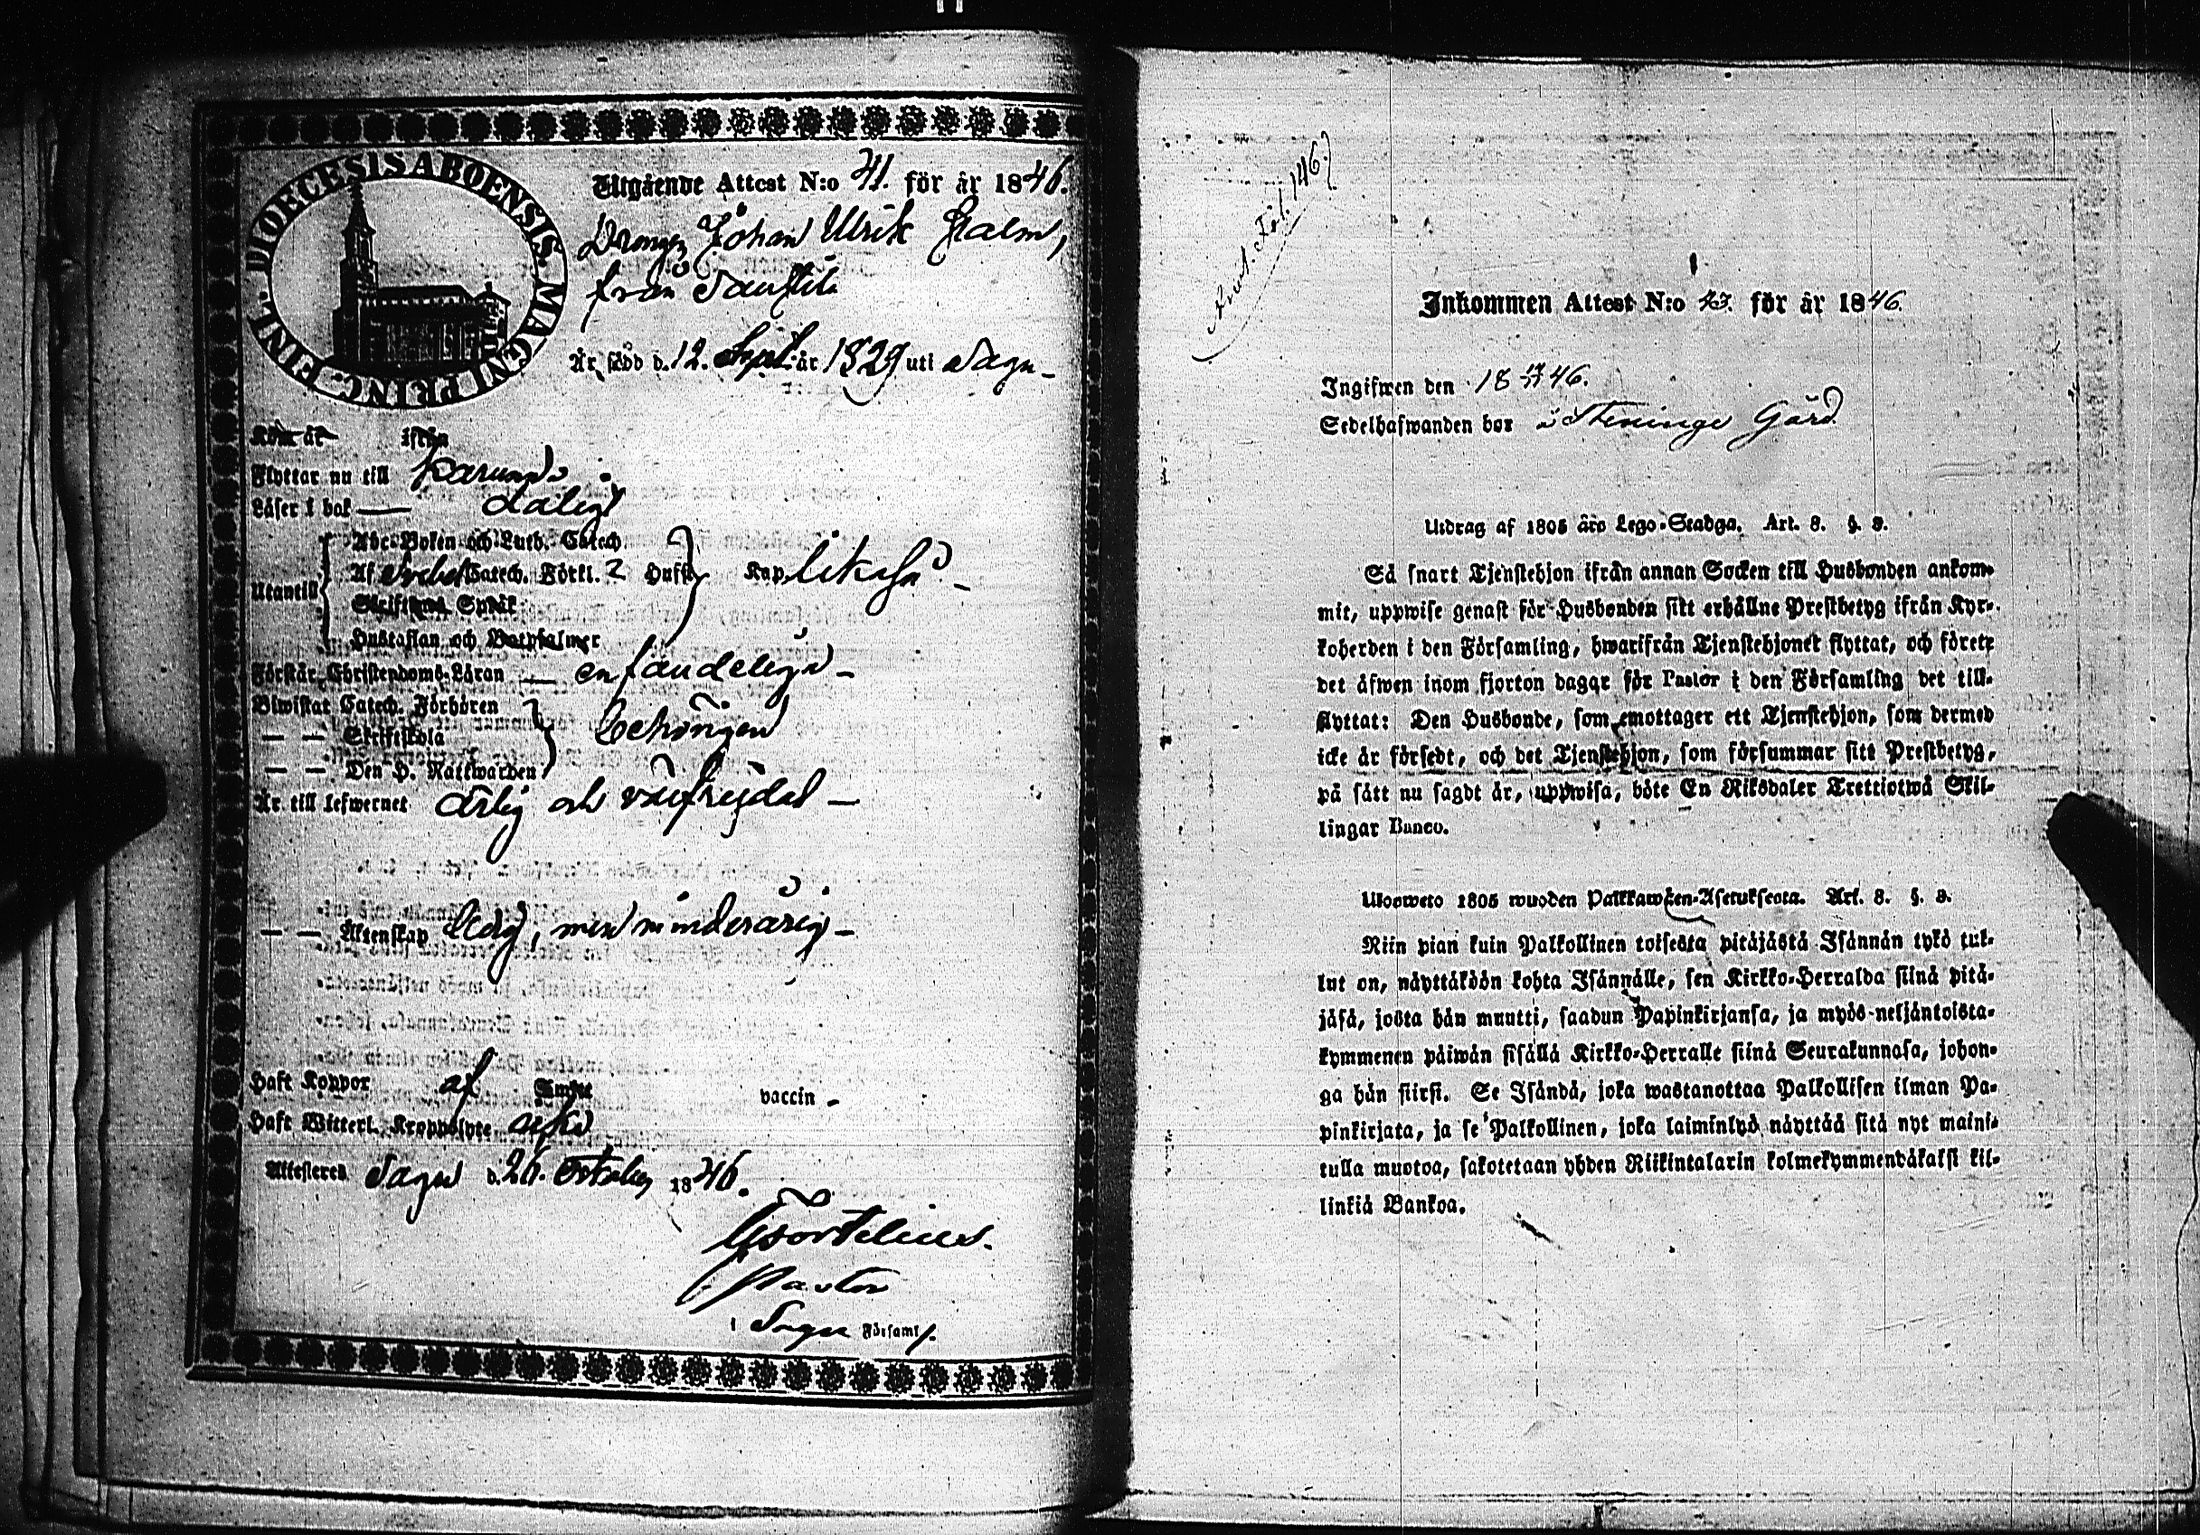 DIOECESIS ABOENSIS. MAGNI PRINC. FINL.
Utgående Attest N:o 41. för år 1846.
Drengen Johan Ulrik Malm,
från
Är född d. 12. Sept. år 1829 uti Sagu
Kom år ifrån
Flyttar nu till Karuna
Läser i bok dåligt
Utantill
Abc-Boken och Luth. Catech
Af Svebel Catech. Förkl. 2 Hufst Kap likaså
Skriftens Språk
Hustaflan och Botpsalmer
Förstår Christendoms-Läran enfaldeligen
Biwistat Catech. Förhören
— — Skriftskola behörigen
— — Den H. Nattwarden
Är till lefwernet ärlig och välfrejdad
— — Äktenskap ledig, men minderårig
Haft Koppor af vaccin
Haft Witterl. Kroppslyte icke
Attesteres Sagu d. 26. October 1846.
Pastor
i Sagu Församl.
Fol. 146.
Inkommen Attest N:o 43. för år 1846.
Ingifwen den 18 46.
Sedelhafwanden bor å Steninge Gård
Utdrag af 1805 års Lego-Stadga. Art. 8. §. 9.
Så snart Tjenstehjon ifrån annan Socken till Husbonden ankom-
mit, uppwise genast för Husbonden sitt erhållne Prestbetyg ifrån Kyr-
koherden i den Församling, hwarifrån Tjenstehjonet flyttat, och förete
det äfwen inom fjorton dagar för Pastor i den Församling det till-
flyttat: Den Husbonde, som emottager ett Tjenstehjon, som dermed
icke är försedt, och det Tjenstehjon, som försummar sitt Prestbetyg,
på sätt nu sagdt är, uppwisa, böte En Riksdaler Trettiotwå Skil-
lingar Banco.
Ulosweto 1805 wuoden Palkkawäen-Asetuksesta. Art. 8. §. 9.
Niin pian kuin Palkollinen toisesta pitäjästä Isännän tykö tul-
lut on, näyttäköön kohta Isännälle, sen Kirkko-Herralda siinä pitä-
jäsä, josta hän muutti, saadun Papinkirjansa, ja myös neljäntoista-
kymmenen päiwän sisällä Kirkko-Herralle siinä Seurakunnasa, johon-
ga hän siirsi. Se Isändä, joka wastanottaa Palkollisen ilman Pa-
pinkirjata, ja se Palkollinen, joka laiminlyö näyttää sitä nyt maini-
tulla muotoa, sakotetaan yhden Riikintalarin kolmekymmendäkaksi kil-
linkiä Bankoa.